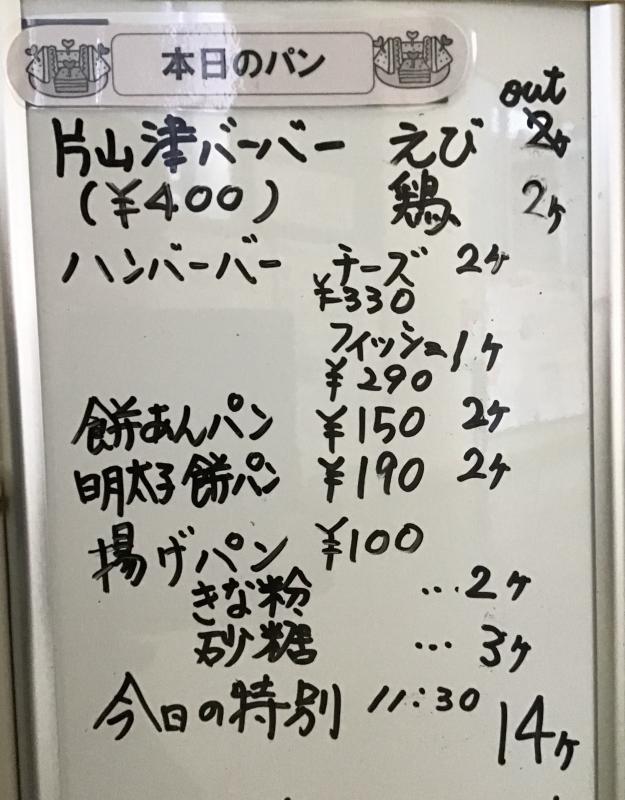 本日のパン
out
片山津バーバー えび 2ヶ
(¥400) 鶏 2ヶ
ハンバーバー チーズ 2ヶ
¥330
フィッシュ 1ヶ
¥290
餅あんパン ¥150 2ヶ
明太子餅パン ¥190 2ヶ
揚げパン ¥100
きな粉 …2ヶ
砂糖 …3ヶ
今日の特別 11:30 14ヶ